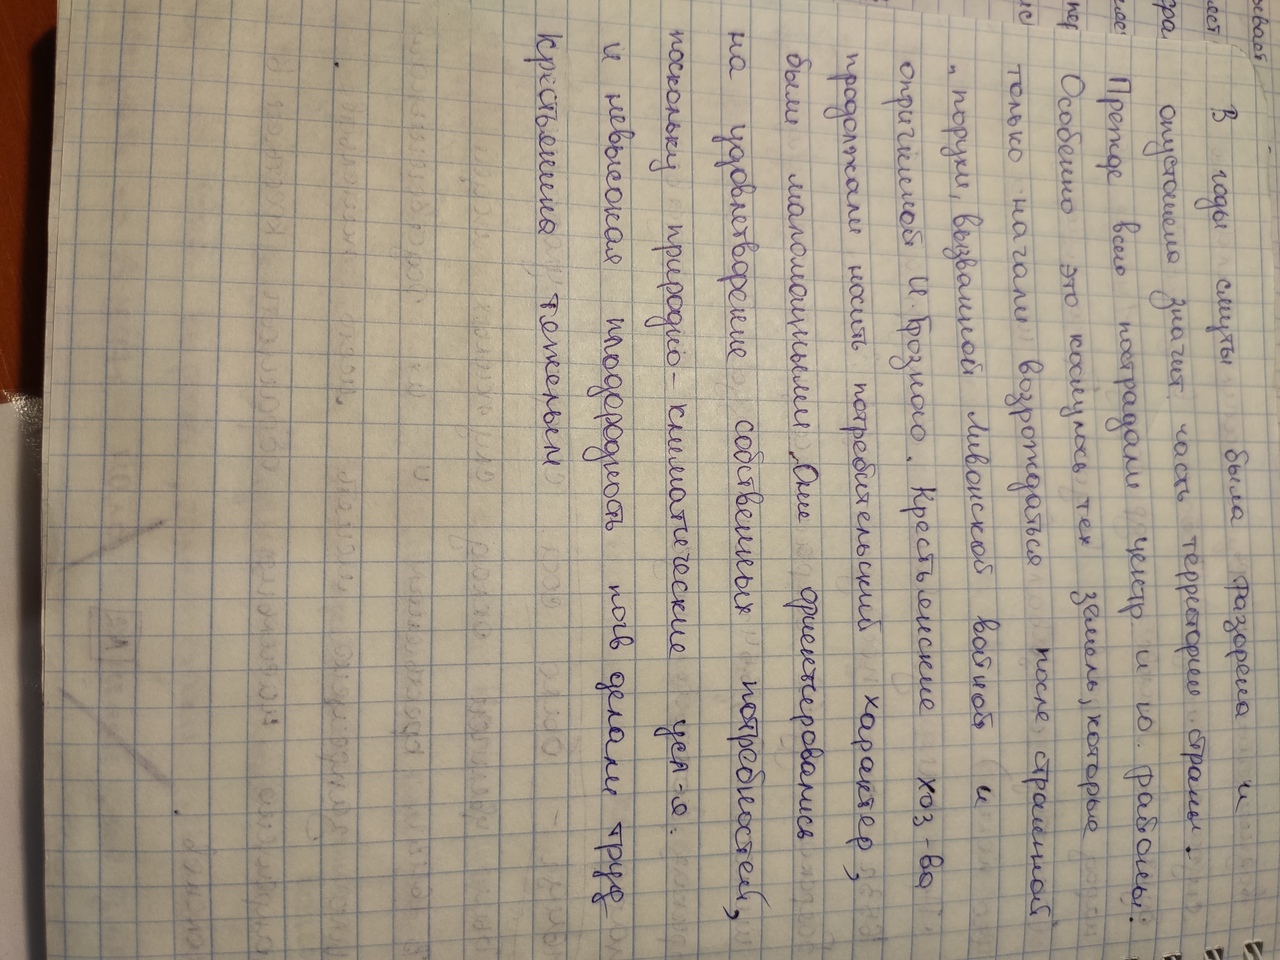 В годы смуты была разорена и
опустошена значит. часть территории страны.
Прежде всего пострадали центр и ю. районы.
Особенно это коснулось тех земель, которые
только начали возрождаться после страшной
"порухи, вызванной Ливонской войной и
опричниной И. Грозного. Крестьянские хоз-ва
продолжали носить потребительский характер,
были маломощными. Они ориентировались
на удовлетворение собственных потребностей,
поскольку природно-климатические усл-я.
и невысокая плодородность почв делали труд
крестьянина тяжелым